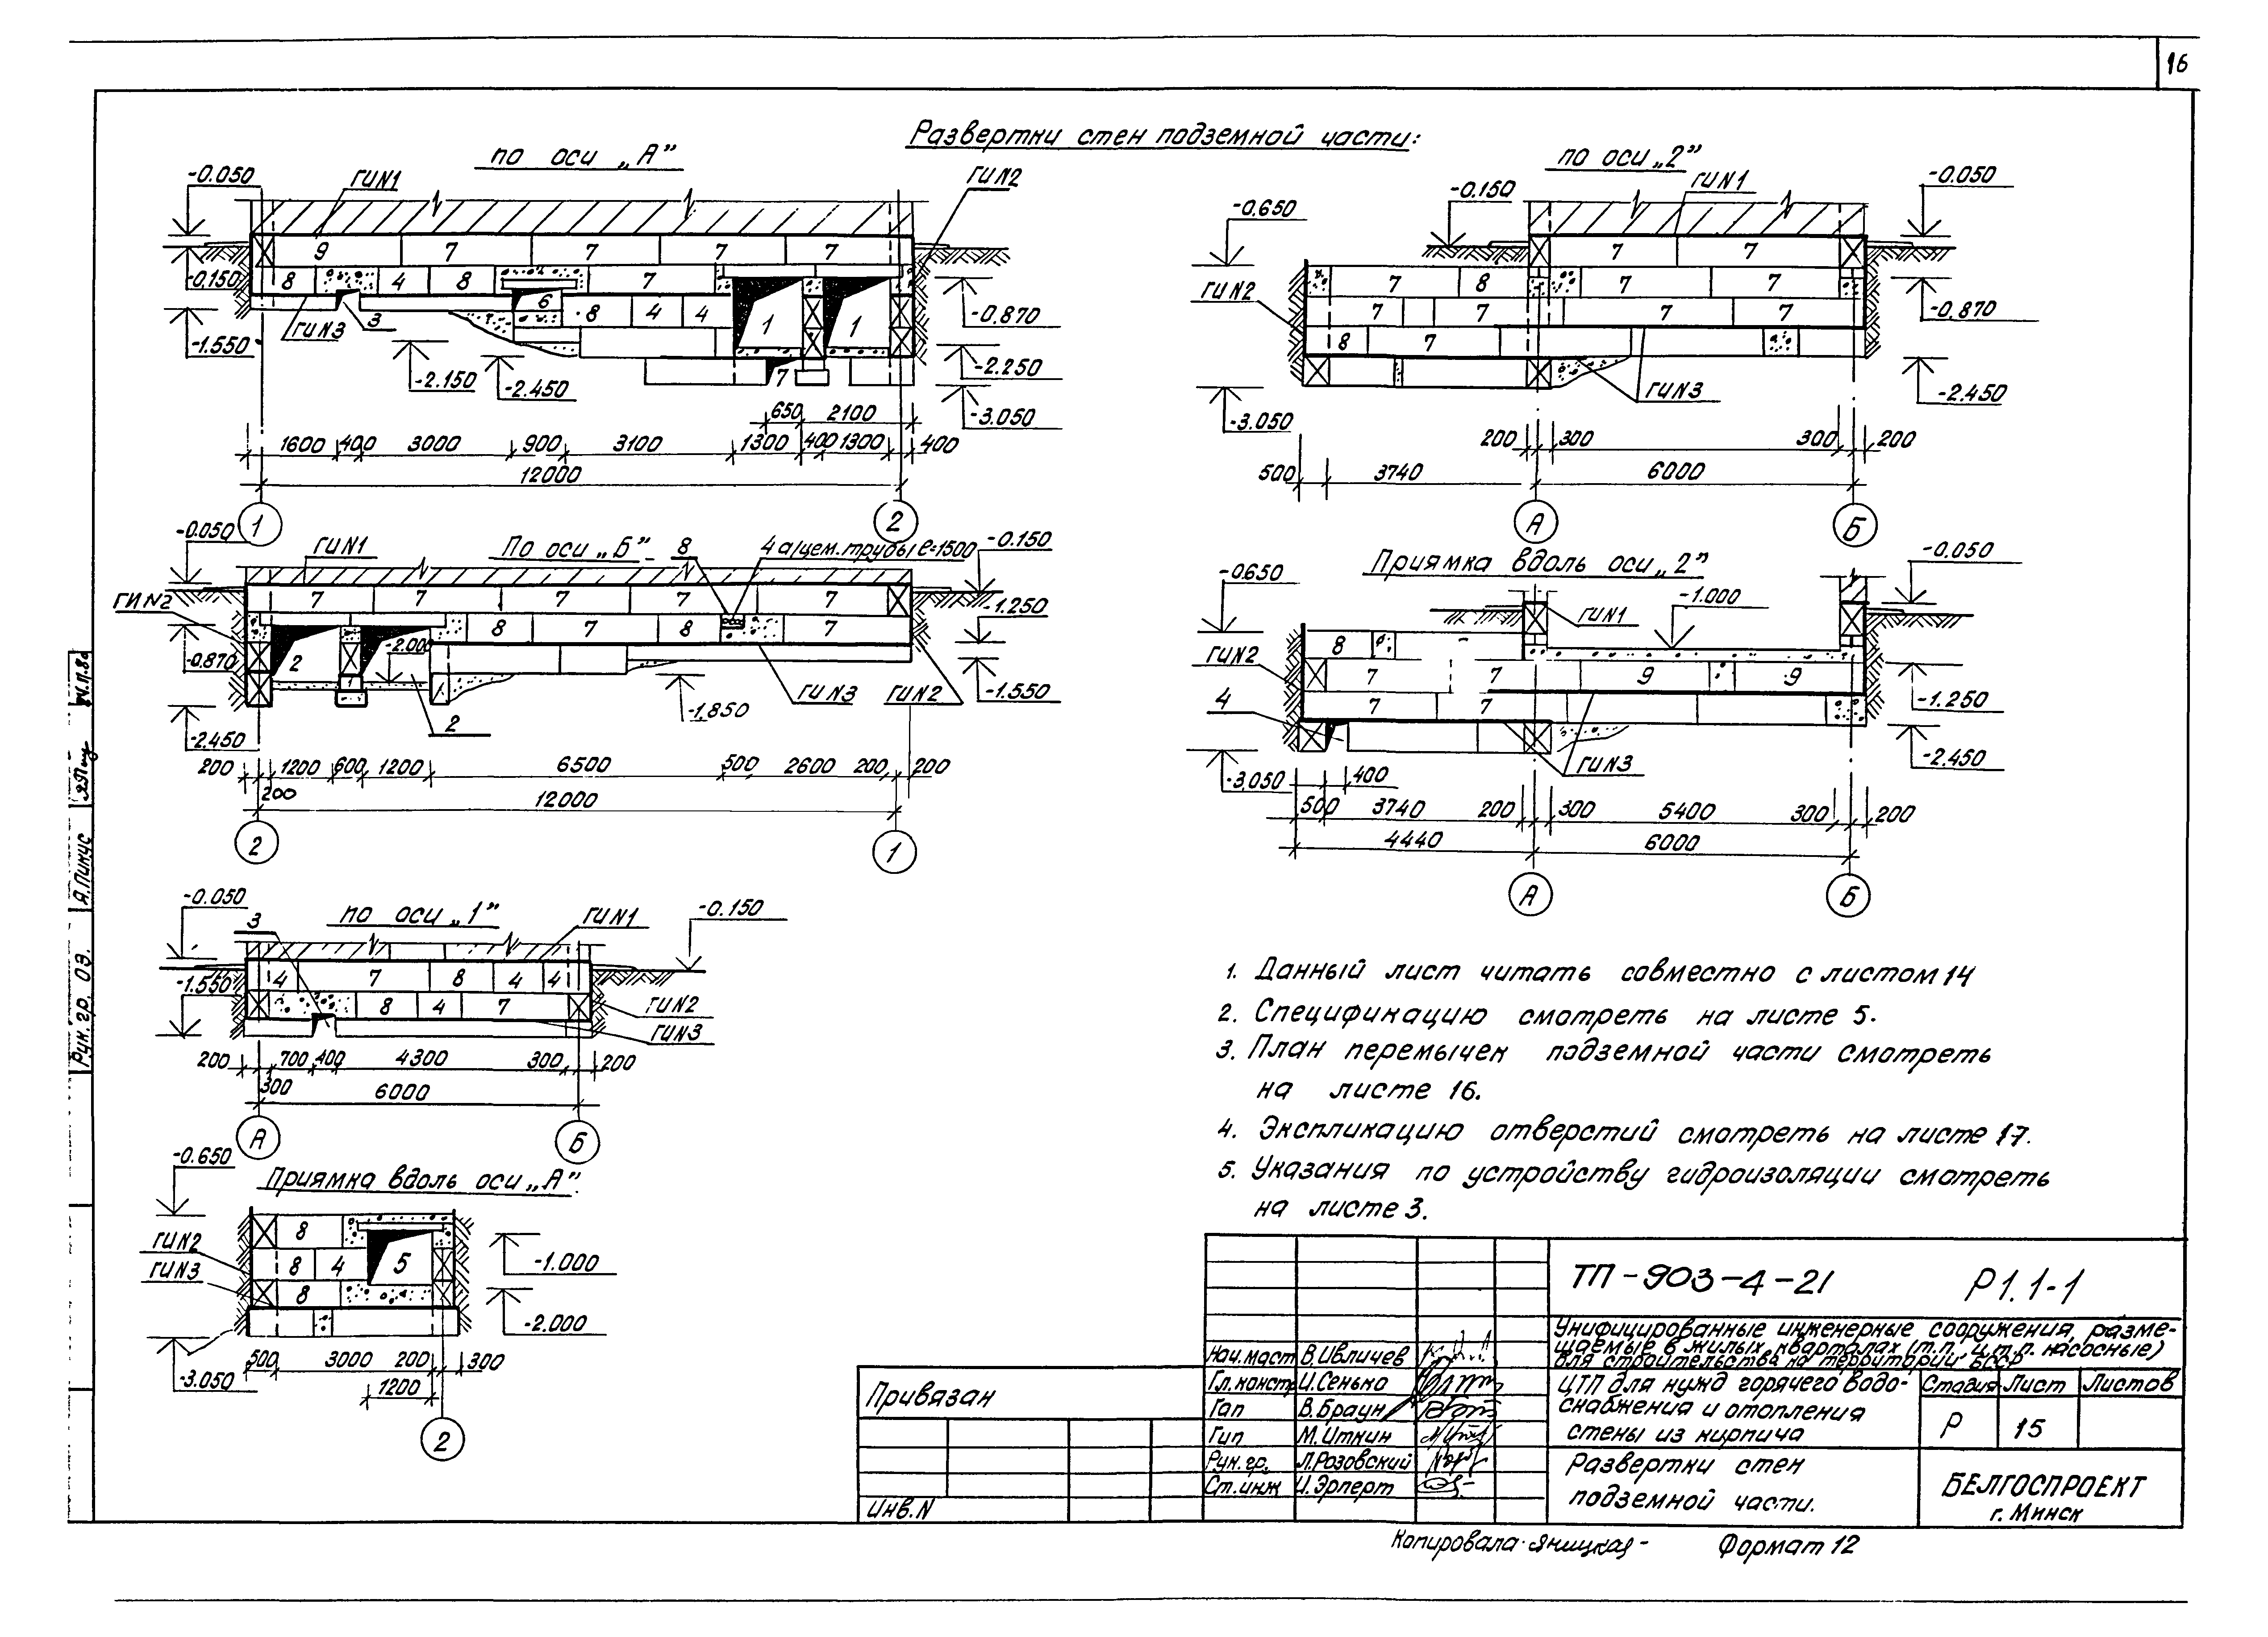 16
Развертки стен подземной части:
по оси „А”
-0.050
ГИN1
ГИN2
9 7 7 7 7
-0.150
8 4 8 7
6 8 4 4 1 1
ГИN3
3
-0.870
-1.550
-2.150
-2.450
7
-2.250
-3.050
650 2100
1600 400 3000 900 3100 1300 400 1300 400
12000
1 2
по оси „2”
-0.650
-0.150
ГИN1
-0.050
7 7
ГИN2
7 8 7 7
7 7 7 7
8 7
-0.870
ГИN3
-3.050
-2.450
200 300 300 200
500 3740 6000
А Б
По оси „Б”
-0.050
ГИN1
8
4 а/цем. трубы ℓ=1500
-0.150
ГИN2
7 7 7 7 7
8 7 8 7
-1.250
-0.870
2
-2.000
2
-1.850
ГИN3
ГИN2
-1.550
-2.450
200 1200 600 1200 6500 500 2600 200 200
200
12000
2 1
Приямка вдоль оси „2”
-0.650
-0.050
ГИN1
-1.000
ГИN2
8
7 7 9 9
4
7 7
-1.250
ГИN3
-3.050
-2.450
400
500 3740 200 300 5400 300 200
4440 6000
А Б
по оси „1”
-0.050
3
ГИN1
-0.150
4 7 8 4 4
-1.550
8 4 7
ГИN2
ГИN3
200 700 400 4300 300 200
300
6000
А Б
Приямка вдоль оси „А”
-0.650
ГИN2
ГИN3
8
8 4 5
8
-1.000
-2.000
-3.050
500 3000 200 300
1200
2
1. Данный лист читать совместно с листом 14
2. Спецификацию смотреть на листе 5.
3. План перемычек подземной части смотреть
на листе 16.
4. Экспликацию отверстий смотреть на листе 17.
5. Указания по устройству гидроизоляции смотреть
на листе 3.
ТП-903-4-21 Р1.1-1
Унифицированные инженерные сооружения, разме-
щаемые в жилых кварталах (т.п. ц.т.п. насосные)
для строительства на территории БССР
Нач.маст В.Ивличев
Гл.констр И.Сенько
Гап В.Браун
Гип М.Иткин
Рук.гр. Л.Розовский
Ст.инж И.Эрперт
ЦТП для нужд горячего водо-
снабжения и отопления
стены из кирпича
Стадия Лист Листов
Р 15
Развертки стен
подземной части.
БЕЛГОСПРОЕКТ
г. Минск
Привязан
Инв.N
Копировала Яницкая-
Формат 12
Рук.гр. 03. А.Пикус